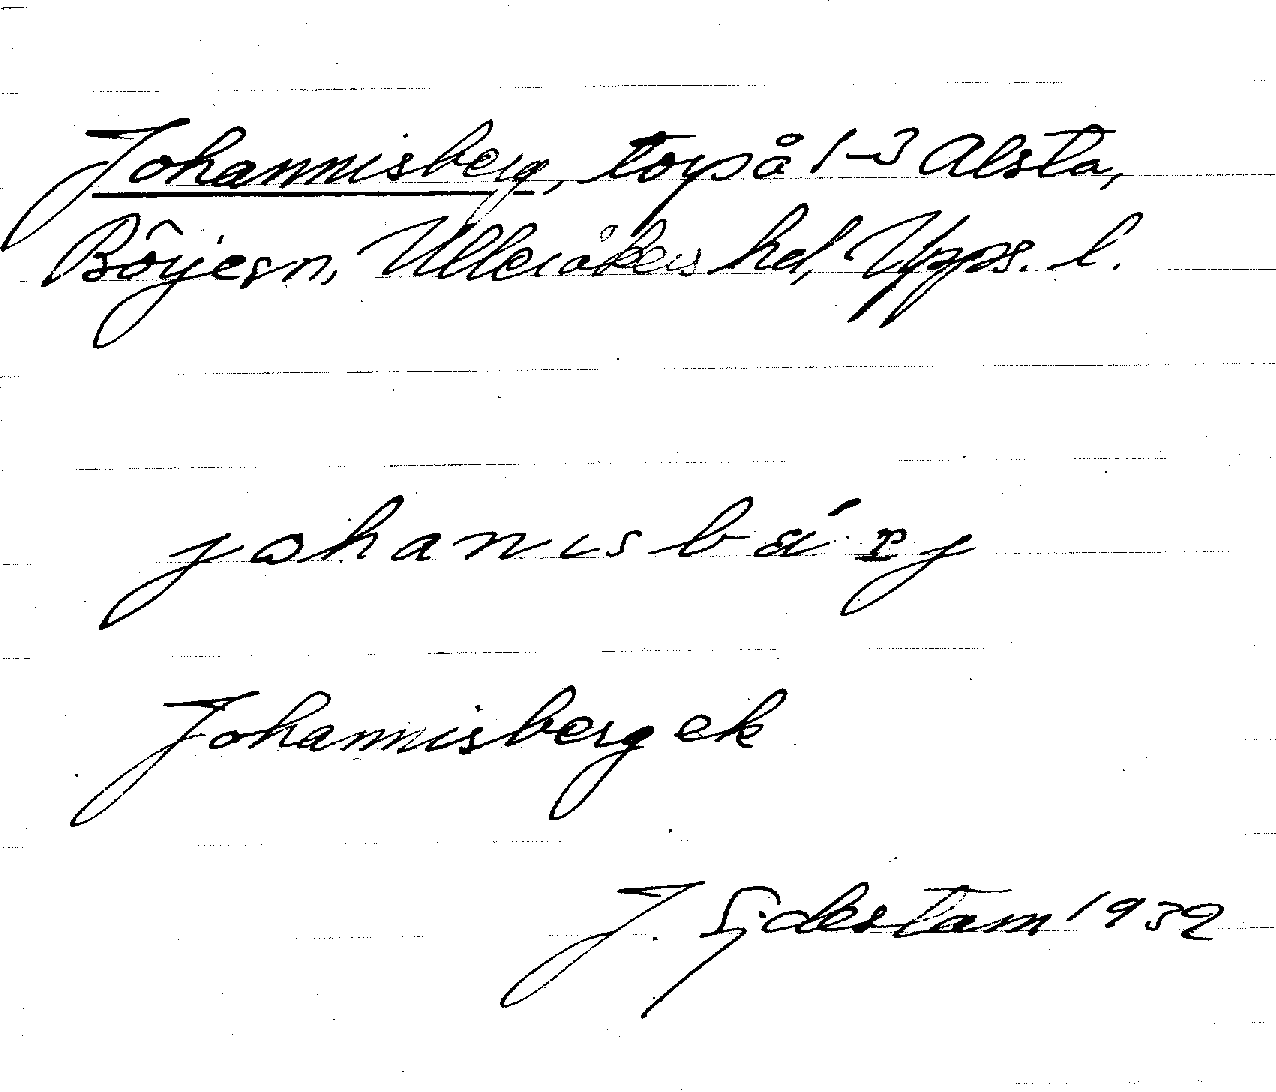 Johannisberg, torp å 1-3 Alsta,
Börje sn, Ulleråkers hd, Upps. l.
johanisbä́rj
Johannisberg ek
J. Sjdestam 1932